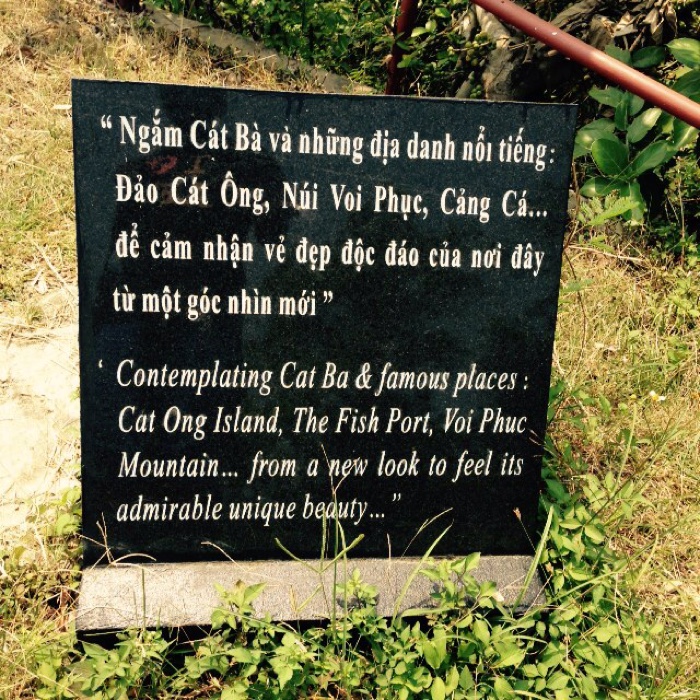 “ Ngắm Cát Bà và những địa danh nổi tiếng:
Đảo Cát Ông, Núi Voi Phục, Cảng Cá...
để cảm nhận vẻ đẹp độc đáo của nơi đây
từ một góc nhìn mới ”
‘ Contemplating Cat Ba & famous places :
Cat Ong Island, The Fish Port, Voi Phuc
Mountain... from a new look to feel its
admirable unique beauty... ”